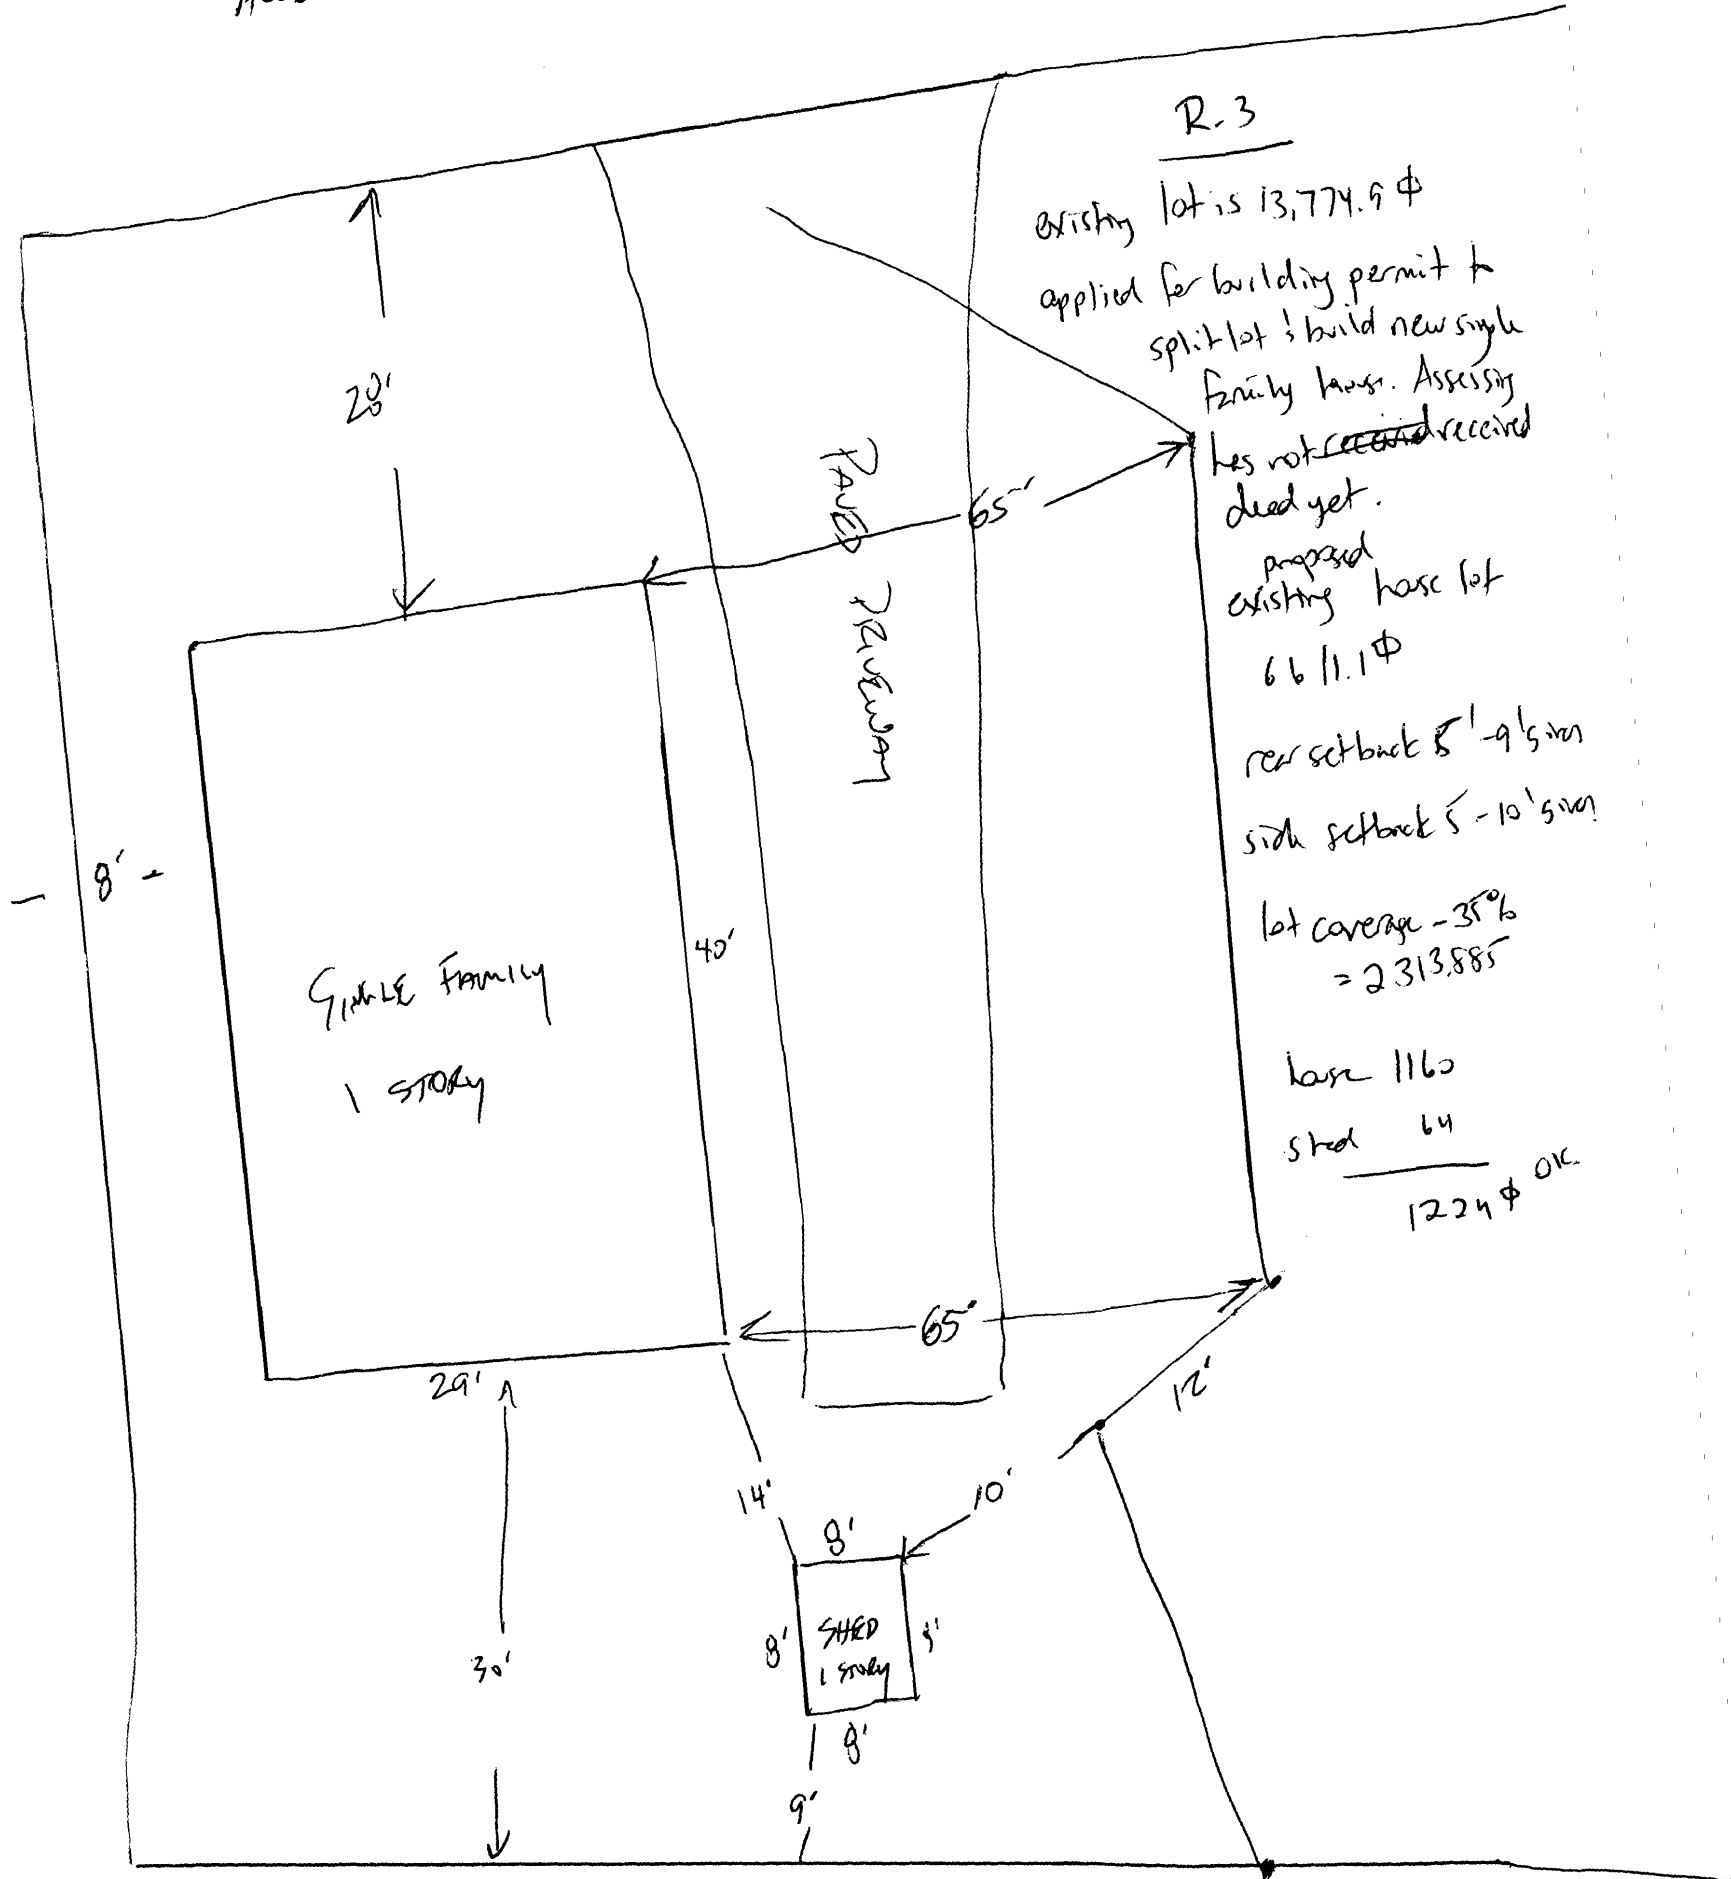 R-3
existing lot is 13,774.9 ⌽
applied for building permit to
split lot & build new single
family house. Assessing
has not received
deed yet.
proposed
existing house lot
6611.1 ⌽
rear setback 5' - 9' given
side setback 5 - 10' given
lot coverage - 35%
= 2313.885
house 1160
shed 64
1224 ⌽ OK
20'
65'
PAVED DRIVEWAY
8'
40'
SINGLE FAMILY
1 STORY
65'
29'
12'
14'
10'
8'
8'
SHED
1 STORY
8'
30'
9'